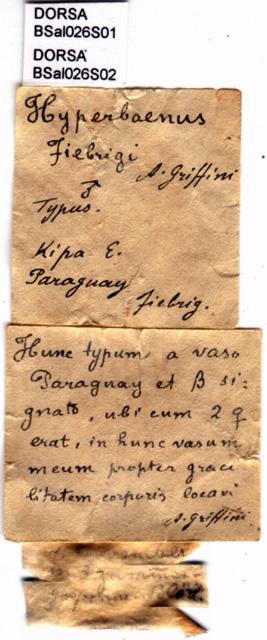 DORSA
BSal026S01
DORSA
BSal026S02
Hyperbaenus
Fiebrigi
A. Griffini
♂
Typus.
Kipa E.
Paraguay
Fiebrig.
Hunc typum a vaso
Paraguay et β si-
gnato, ubi cum 2 ♀
erat, in hunc vasum
mecum propter graci
litatem corporis locavi
A. Griffini